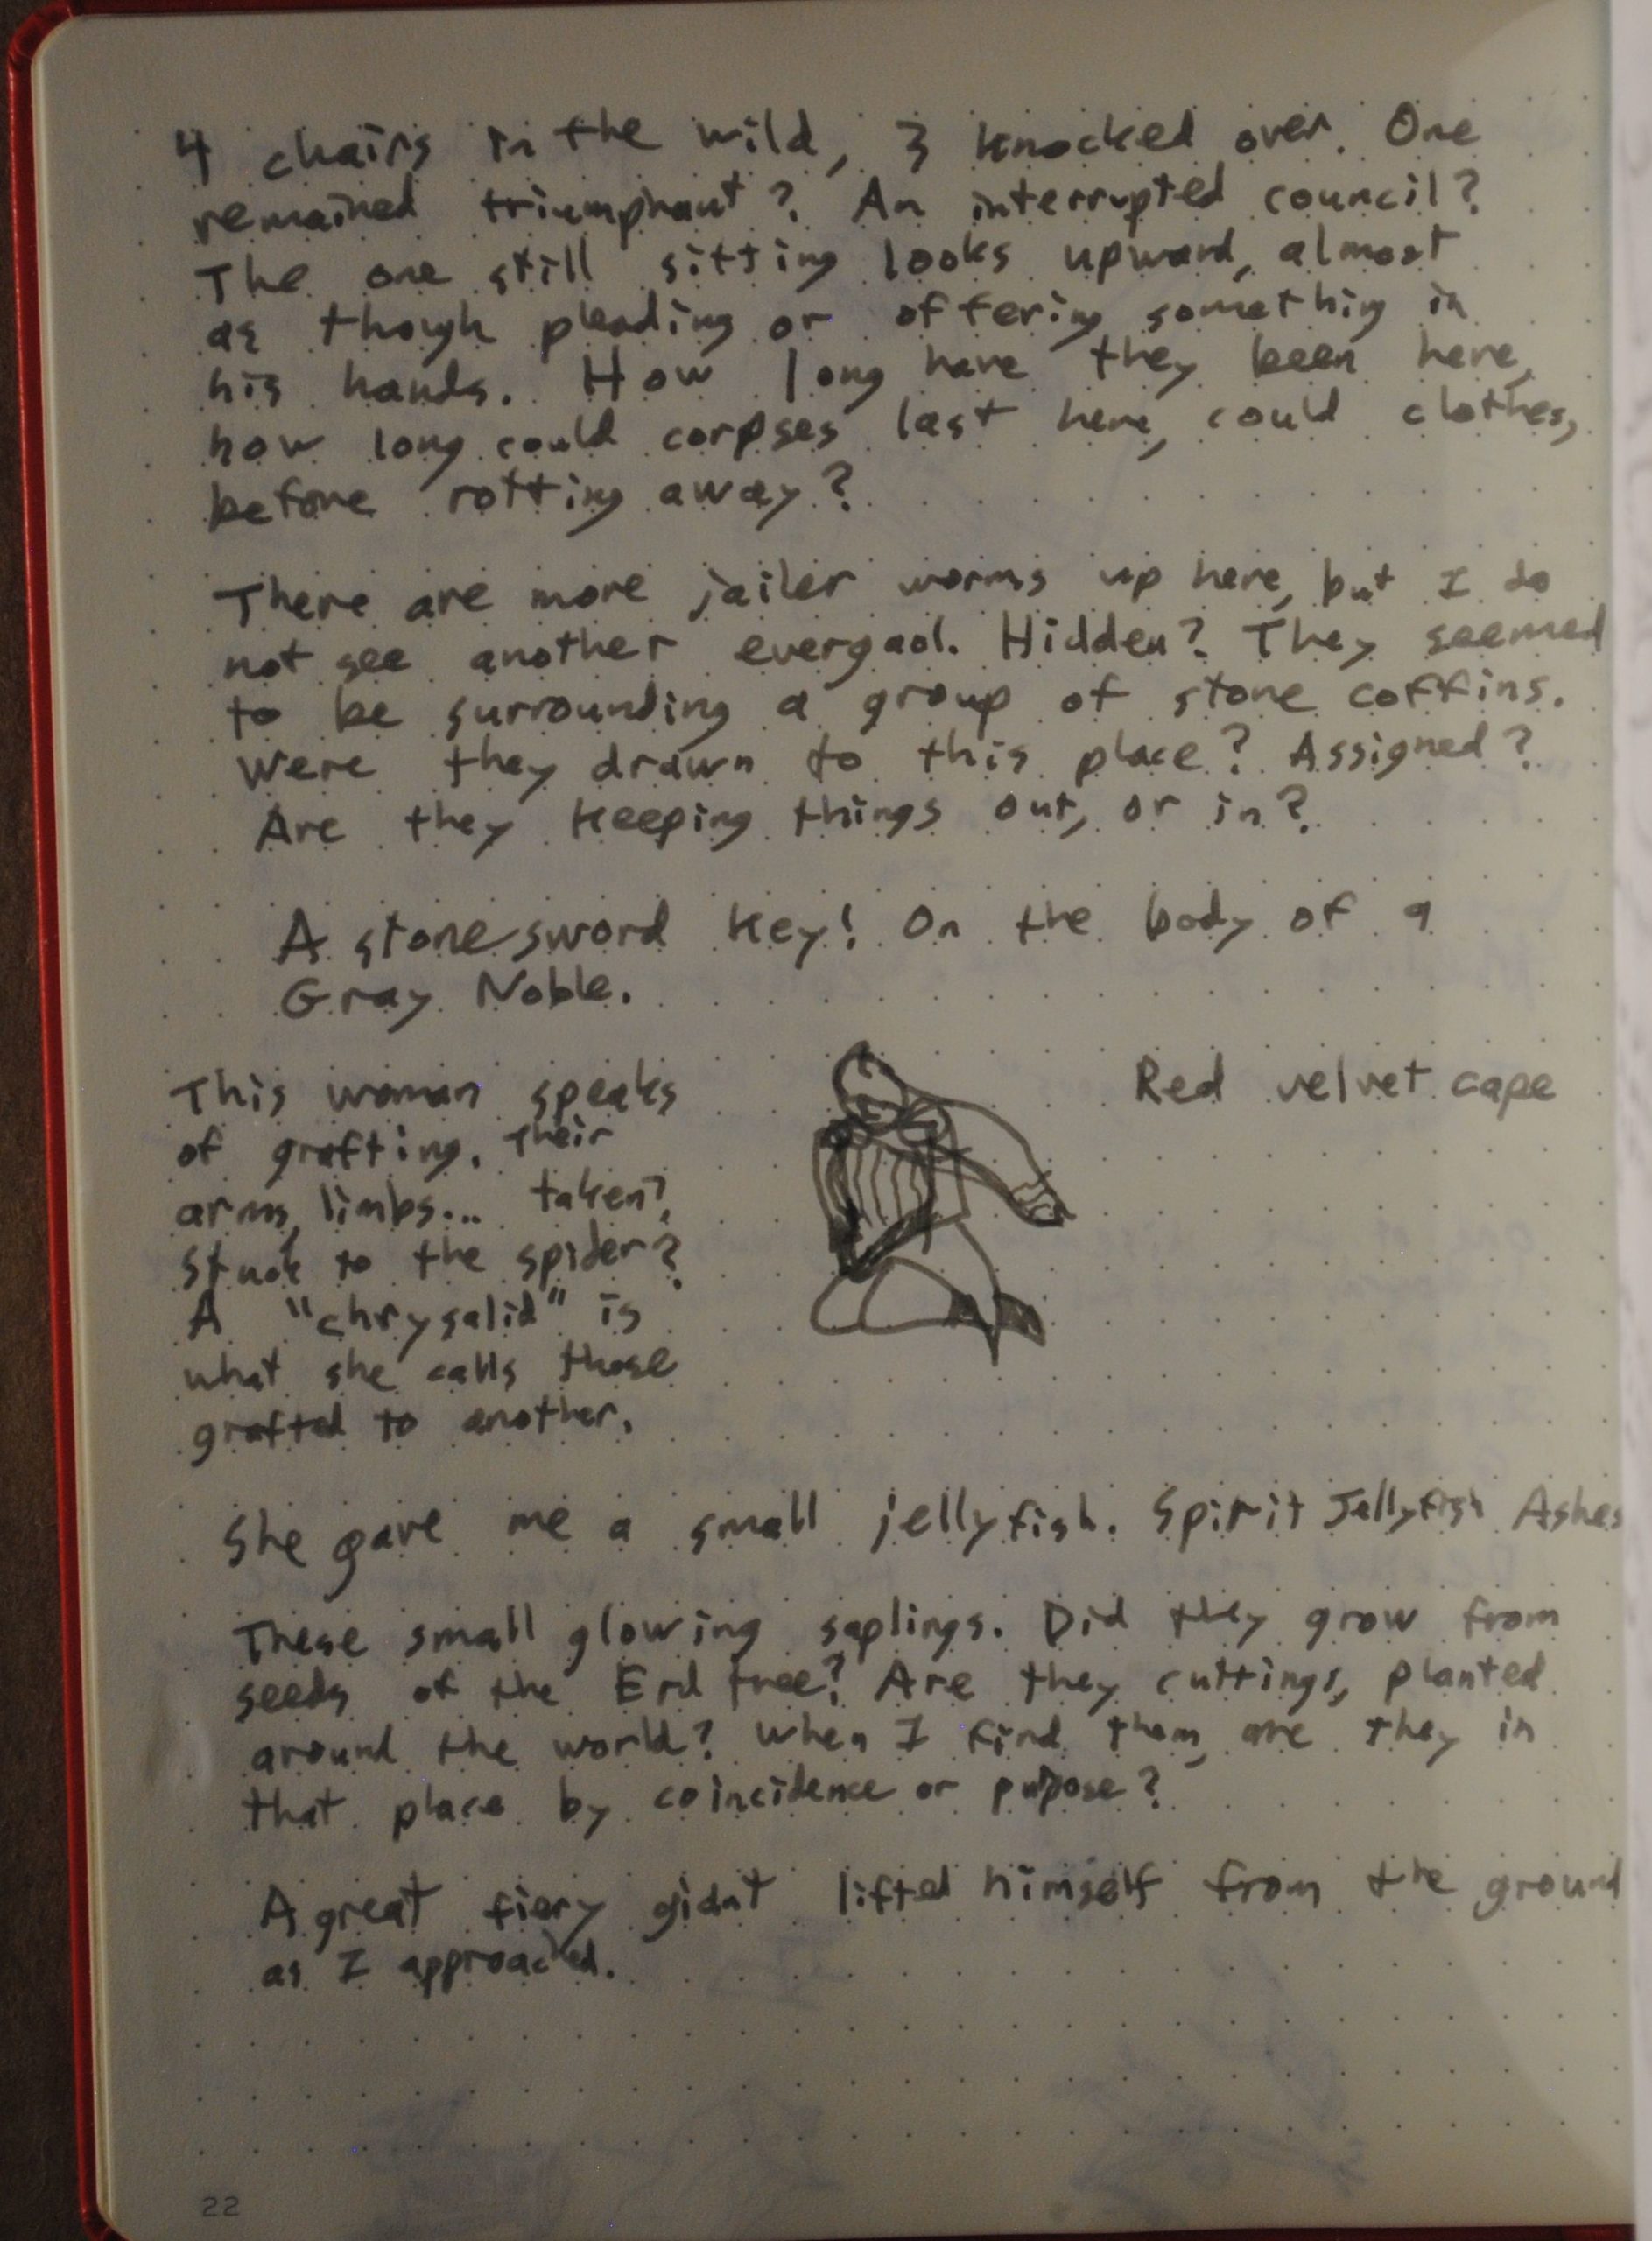 4 chairs in the wild, 3 knocked over. One
remained triumphant? An interrupted council?
The one still sitting looks upward, almost
as though pleading or offering something in
his hands. How long have they been here,
how long could corpses last here, could clothes,
before rotting away?
There are more jailer worms up here, but I do
not see another evergaol. Hidden? They seemed
to be surrounding a group of stone coffins.
Were they drawn to this place? Assigned?
Are they keeping things out, or in?
A stonesword key! On the body of a
Gray Noble.
This woman speaks
of grafting. Their
arms, limbs... taken?
Stuck to the spider?
A "chrysalid" is
what she calls those
grafted to another.
Red velvet cape
She gave me a small jellyfish. Spirit Jellyfish Ashes
These small glowing saplings. Did they grow from
seeds of the Erd tree? Are they cuttings, planted
around the world? When I find them, are they in
that place by coincidence or pupose?
A great fiery giant lifted himself from the ground
as I approached.
22